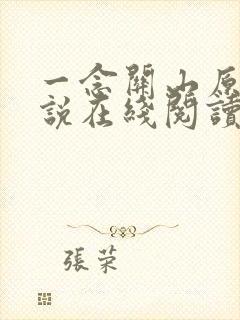 一念關山原
說在綫閱讀
張榮